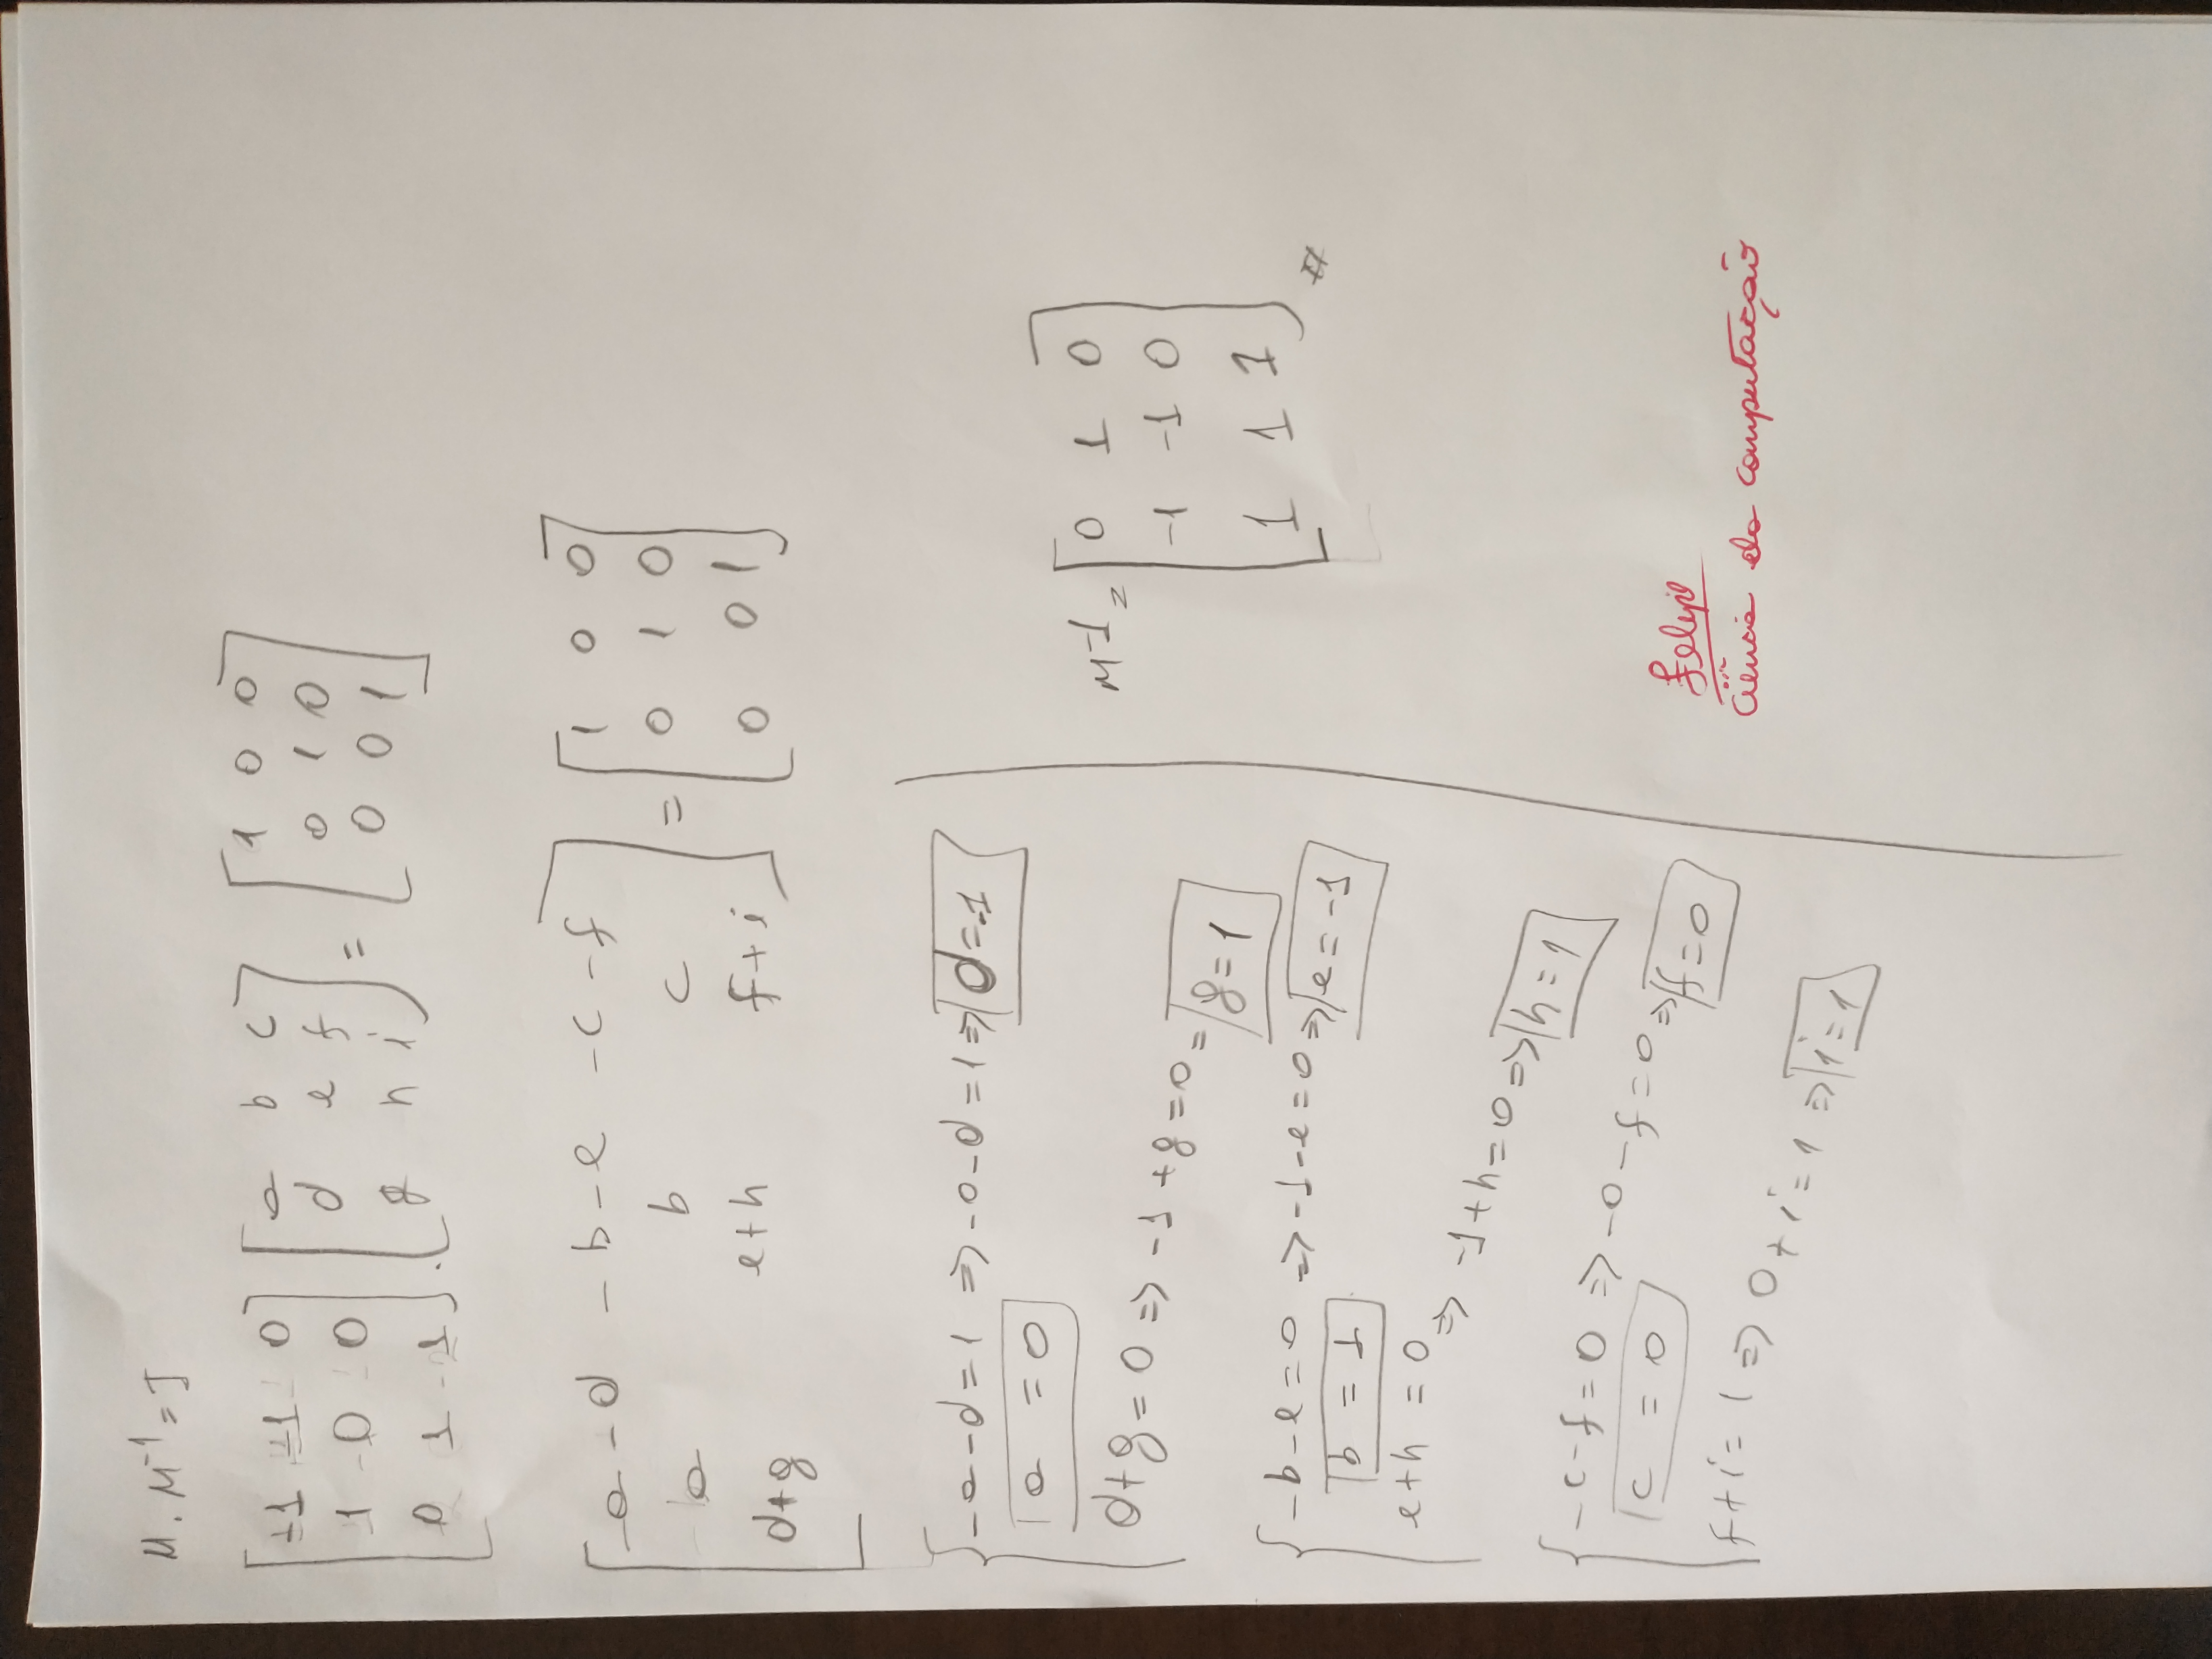 M . M⁻¹ = I
[-1 -1 0] [a b c] [1 0 0]
[1 0 0] . [d e f] = [0 1 0]
[0 1 1] [g h i] [0 0 1]
[-a - d   - b - e   - c - f] [1 0 0]
[a   b   c] = [0 1 0]
[d+g   e+h   f+i] [0 0 1]
{ -a - d = 1 => -0 - d = 1 => d = -1
a = 0
d+g = 0 => -1 + g = 0 = g = 1
{ -b - e = 0 => -1 - e = 0 => e = -1
b = 1
e+h = 0 => -1 + h = 0 => h = 1
{ -c - f = 0 => -0 - f = 0 => f = 0
c = 0
f + i = 1 => 0 + i = 1 => i = 1
M⁻¹ = [0 1 0]
[-1 -1 0]
[1 1 1] #
Felipe
Ciência da computação